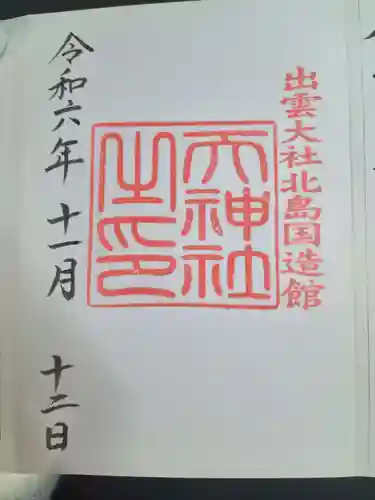 出雲大社北島国造館
天神社
之印
令和六年 十一月 十二日